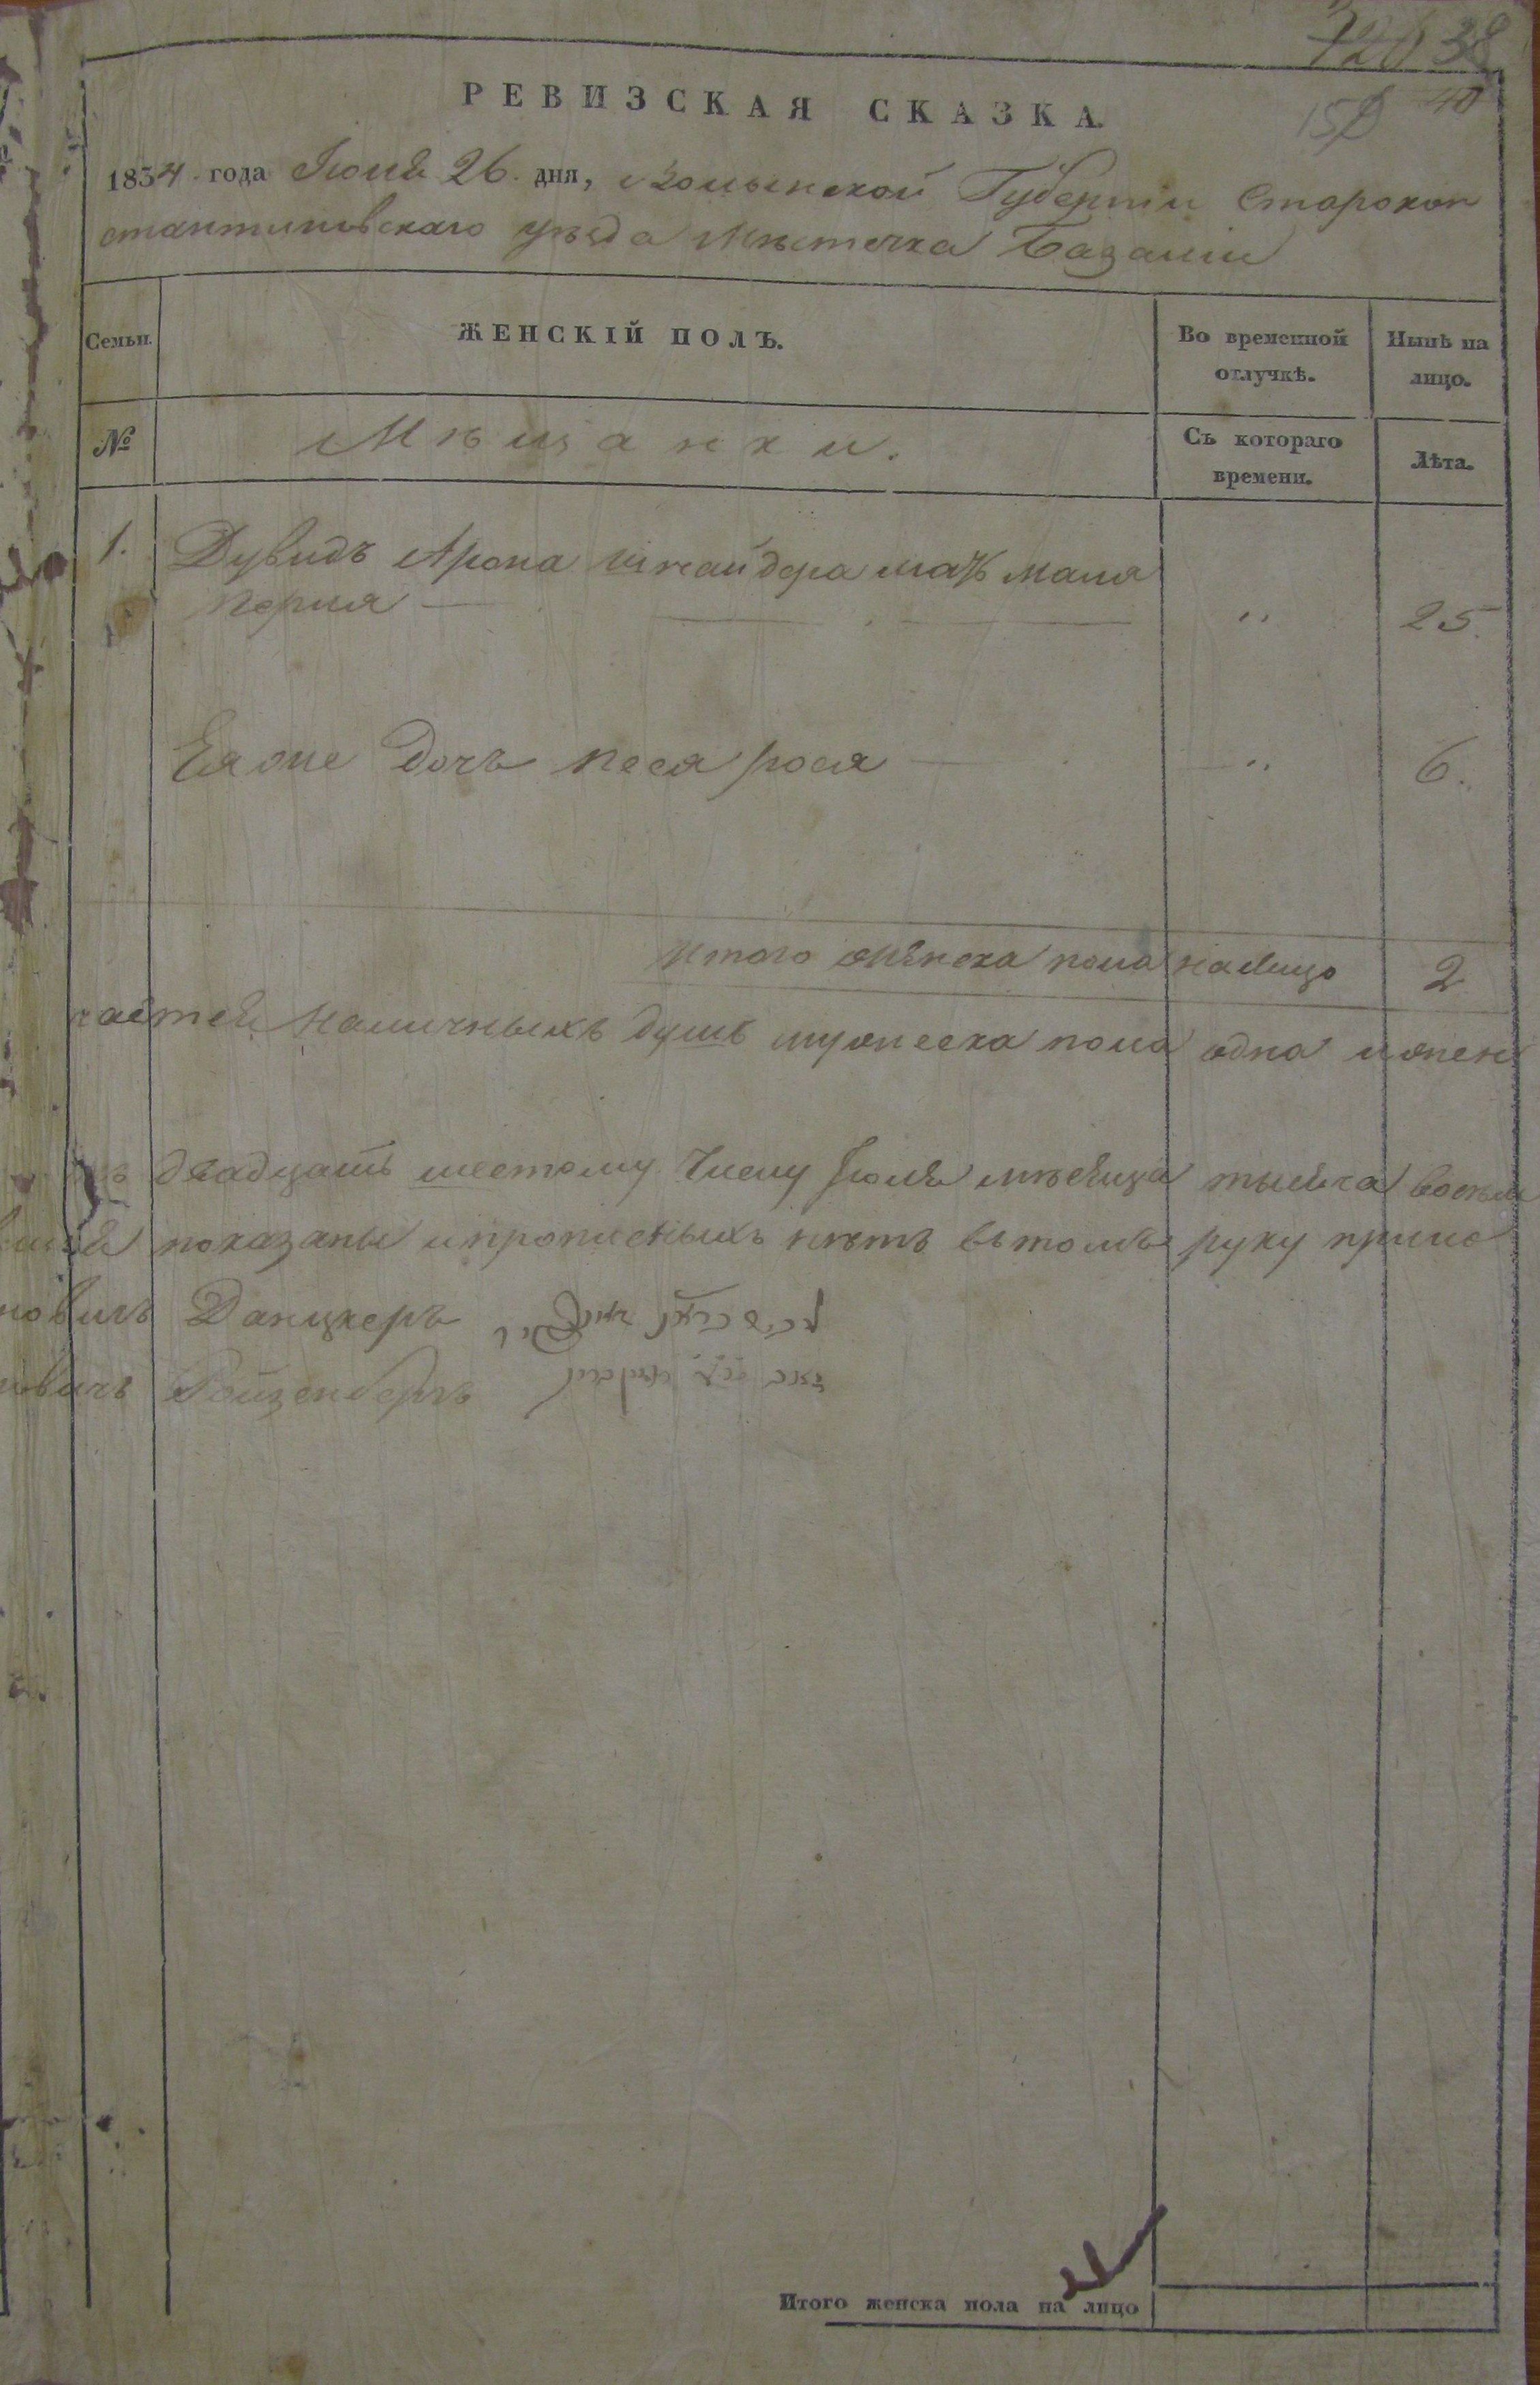 38
40
РЕВИЗСКАЯ СКАЗКА.
1834 года Іюля 26 дня, Волынской Губерніи Старокон
стантиновскаго уѣзда Мѣстечка Базаліи
Семьи. ЖЕНСКІЙ ПОЛЪ. Во временной отлучкѣ. Нынѣ на лицо.
№ Мѣщанки. Съ котораго времени. Лѣта.
1. Дувидъ Арона Шнайдера мать Маля
Перля — " 25.
Ея же дочь Песя рося — " 6.
Итого женска пола налицо 2
наличныхъ душъ мужеска пола одна и жен
двадцать шестому числу Іюля мѣсяца тысяча восем
показаны и прописныхъ нѣтъ въ томъ руку прило
новичъ Данцкеръ
овичъ Ройзенбергъ
Итого женска пола на лицо